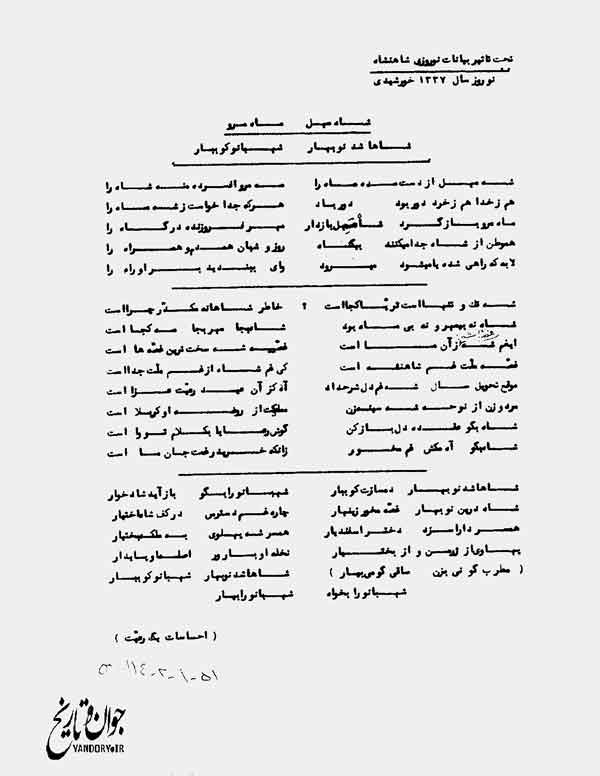 تحت تاثیر بیانات نوروزی شاهنشاه
نوروز سال ۱۳۳۷ خورشیدی
شاه میل ماه مرو
شاها شد نوبهار شهبانو کو بیار
شه میل از دست مده ماه را مه مرو افسرده منه شاه را
هم ز خدا هم ز خرد دور بود دور باد هرکه جدا خواست ز شه ماه را
ماه مرو باز گرد شاه میل باز دار مهر فروزنده در گاه را
هموطن از شاه جدا میکنند بیگناه روز و شبان همدم و همراه را
لابه که راهی شده یا میشود میرود وای ببندید بر او راه را
شه تک و تنها است ثریا کجا است ؟ خاطر شاهانه مکدر چرا است
شاه نه بیمهر و نه بی ماه بود شاه اینجا مهر بجا مه کجا است
اینغم شه از آن ما است قضیه شه سخت ترین قصه ها است
قصه ملت غم شاهنشه است کی غم شاه از غم ملت جدا است
موقع تحویل سال شه غم دل شرح داد آه کز آن عید رعیت عزا است
مرد و زن از نوحه شه سینه زن مملکت از روضه او کربلا است
شاه بگو عقده دل باز کن گوش رعایا بکلام تو را است
شاه بگو آه مکش غم مخور زانکه خریدار غمت جان ما است
شاها شد نوبهار دمسازت کو بیار شهبانو را بگو باز آید شادخوار
شاه درین نوبهار غصه مخور زینهار چاره غم دسترس در کف شاه اختیار
همسر دارا سزد دختر اسفندیار همسر شه پهلوی به ملکه بختیار
پهلوی از و از بختیار نخله او بارور اصلها پایدار
( مطرب گو نی بزن ساقی گو می بیار ) شاها شد نوبهار شهبانو کو بیار
شهبانو را بخواه شهبانو را بیار
( احساسات یک رعیت )
۵۱-۱-۲-۱۱۴ س
جوان و تاریخ
YANDORY.IR